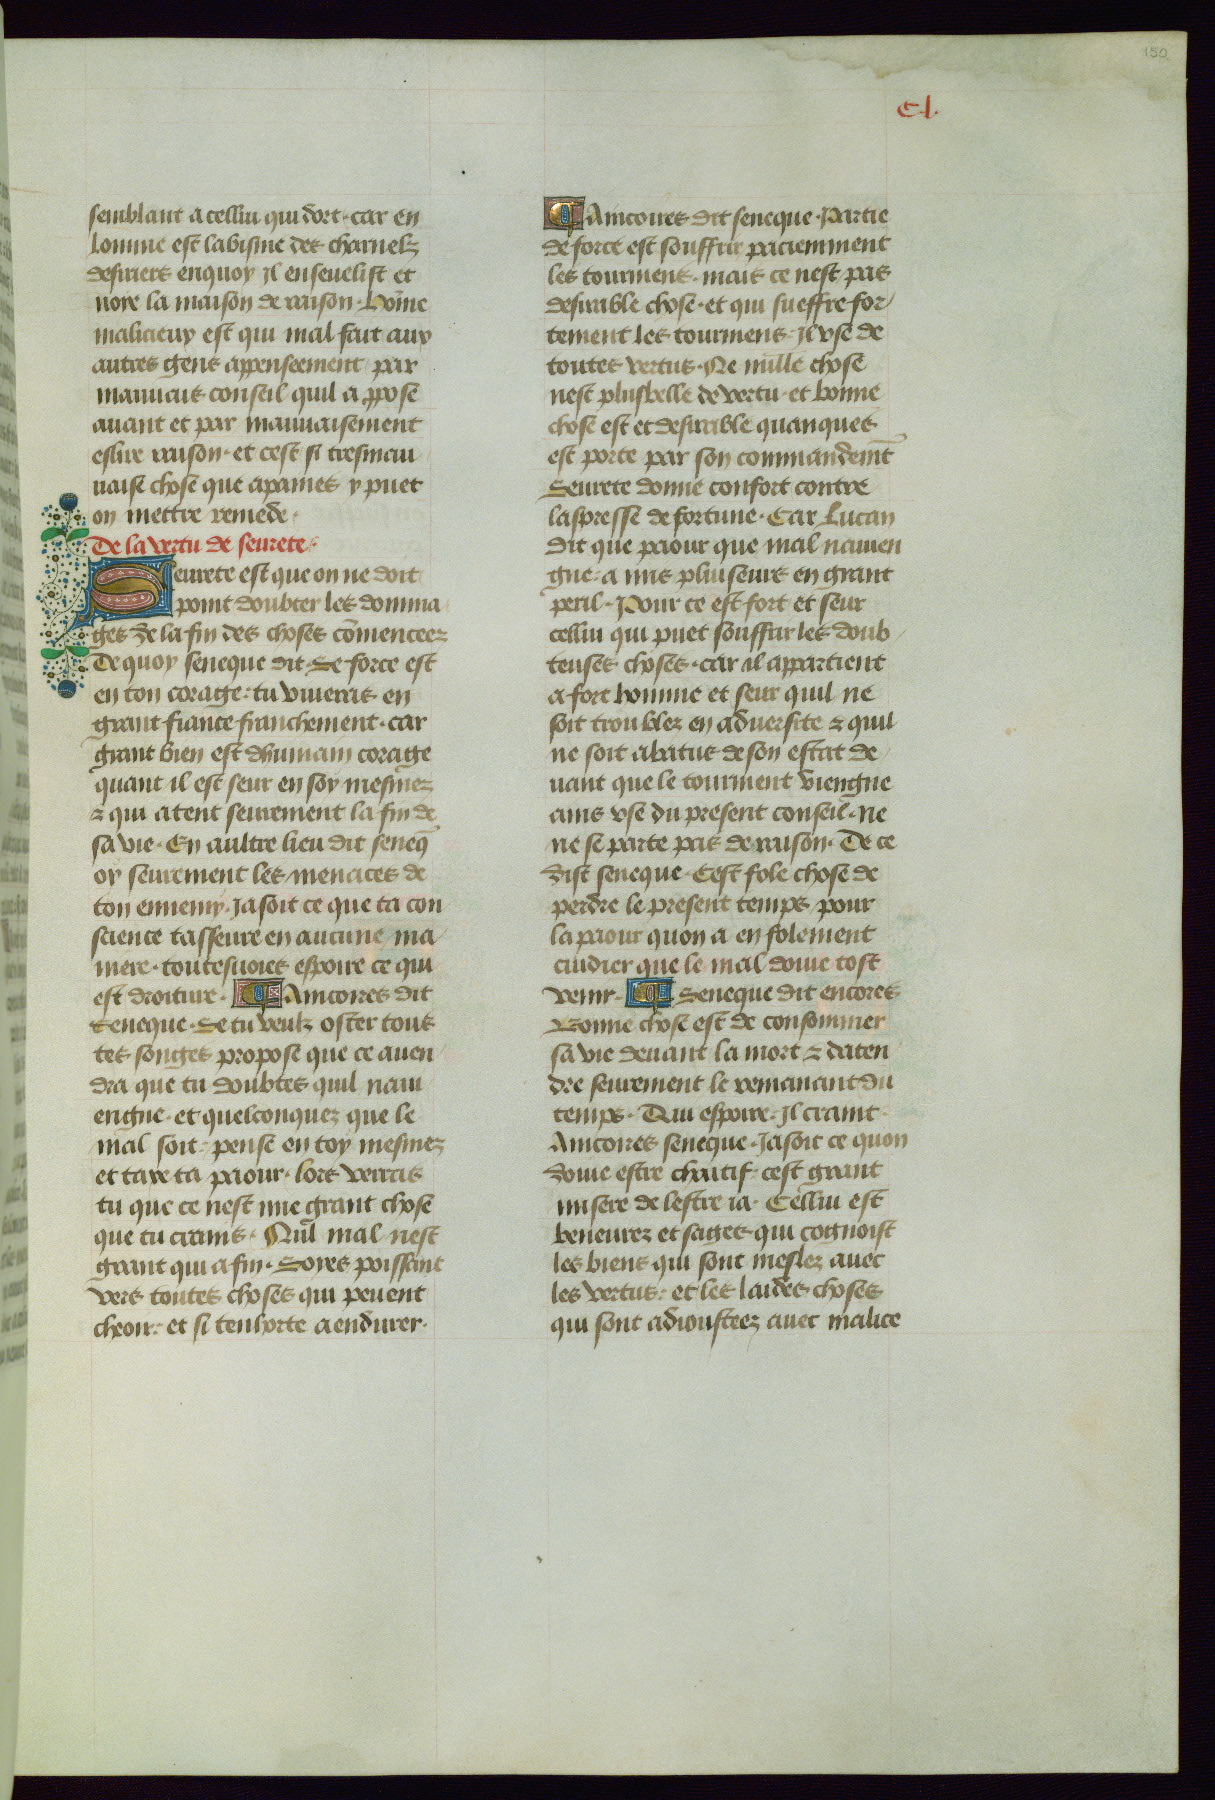 150
C.l.
semblant a celluy qui dort. car en
lomme est labisme des charnelz
desiriers enquoy il enseuelist et
noye la maison de raison. Home
malicieux est qui mal fait aux
autres gens apenseement par
mauuais conseil quil a ppose
auant et par mauuaisement
eslire raison. et cest si tresmau
uaise chose que apaines y puet
on mettre remede.
De la vertu de seurete.
Seurete est que on ne doit
point doubter les domma
ges de la fin des choses cōmenceez
De quoy seneque dit. Se force est
en ton corage: tu viueras en
grant fiance franchement. car
grant bien est dhumain corage
quant il est seur en soy mesmez
⁊ qui atent seurement la fin de
sa vie. En aultre lieu dit seneq̄
oy seurement les menaces de
ton ennemy. Ja soit ce que ta con
science tasseure en aucune ma
niere. toutesuoies espoire ce qui
est droiture. ¶ Aincores dit
Seneque. Se tu veulz oster tous
tes songes propose que ce auen
dra que tu doubtes quil naui
engne. et quelconquez que le
mal soit. pense en toy mesmez
et taxe ta paour. lors verras
tu que ce nest mie grant chose
que tu crains. Nul mal nest
grant qui a fin. Soyes poissant
vers toutes choses qui peuent
cheoir: et si tenhorte a endurer.
¶ Aincores dit seneque. Partie
de force est souffrir paciemment
les tourmens. mais ce nest pas
desirable chose. et qui sueffre for
tement les tourmens. Il vse de
toutes vertus. Ne nulle chose
nest plusbelle de vertu. et bonne
chose est et desirable quanques
est porte par son commandemēt
Seurete donne confort contre
laspresse de fortune. Car Lucan
dit que paour que mal nauien
gne. a mis pluiseurs en grant
peril. Pour ce est fort et seur
celluy qui puet souffrir les doub
teuses choses. car il appartient
a fort homme et seur quil ne
soit troublez en aduersite ⁊ quil
ne soit abatus de son estat de
uant que le tourment viengne
ains vse du present conseil. ne
ne se parte pas de raison. De ce
dist seneque. Cest fole chose de
perdre le present temps pour
la paour quon a en folement
cuidier que le mal doiue tost
venir. ¶ Seneque dit encores
Bonne chose est de consommer
sa vie deuant la mort ⁊ daten
dre seurement le remanant du
temps. Qui espoire. Il craint.
Aincores seneque. Ja soit ce quon
doiue estre chaitif. cest grant
misere de lestre ia. Celluy est
beneurez et sages qui cognoist
les biens qui sont meslez auec
les vertus: et les laides choses
qui sont adiousteez auec malice